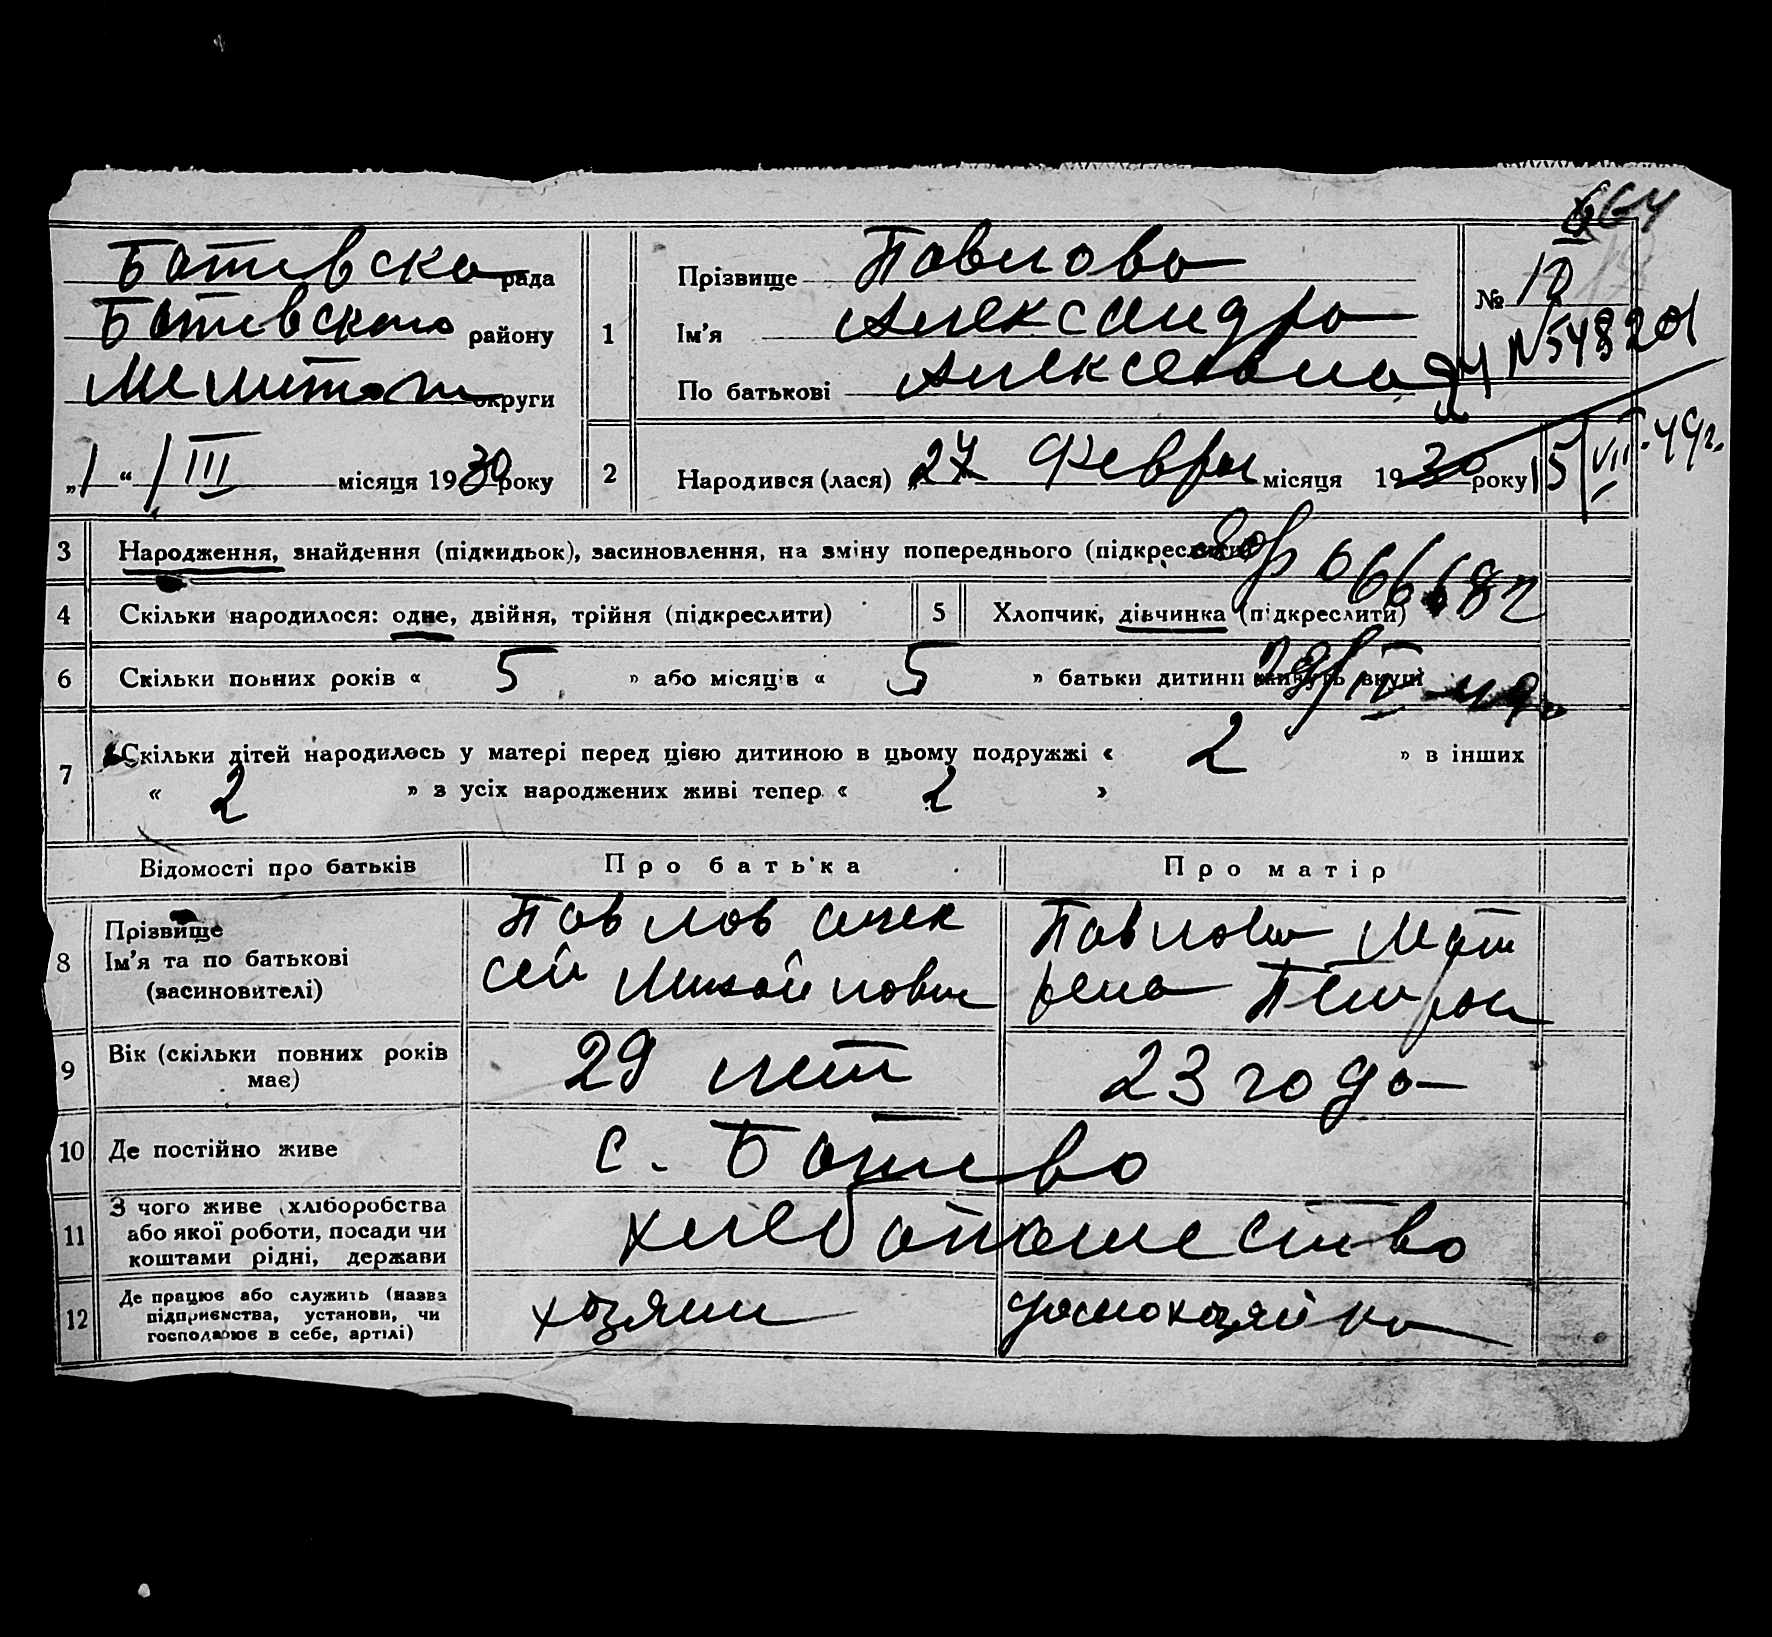 664
Ботиевска рада
Ботиевского району
Мелитоп округи
„1“ /III місяця 1930 року
1
Прізвище Павлова
Ім'я Александра
По батькові Алексеевна
№ 10
№548201
2
Народився (лася) „27 Феврал місяця 1930 року
15/VII-49г.
3 Народження, знайдення (підкидьок), засиновлення, на зміну попереднього (підкреслити)
666682
4 Скільки народилося: одне, двійня, трійня (підкреслити)
5 Хлопчик, дівчинка (підкреслити)
6 Скільки повних років « 5 » або місяців « 5 » батьки дитини живуть вкупі
29/IV-49.
7 Скільки дітей народилось у матері перед цією дитиною в цьому подружжі « 2 » в інших
« 2 » з усіх народжених живі тепер « 2 »
Відомості про батьків
Про батька
Про матір
8 Прізвище
Ім'я та по батькові
(засиновителі)
Павлов Алек
сей Михайлович
Павлова Мат
рена Петров
9 Вік (скільки повних років
має)
29 лет
23 года
10 Де постійно живе
с. Ботиево
11 З чого живе (хліборобства
або якої роботи, посади чи
коштами рідні, держави
хлебопашество
12 Де працює або служить (назва
підприємства, установи, чи
господарює в себе, артілі)
хозяин
домохозяйка